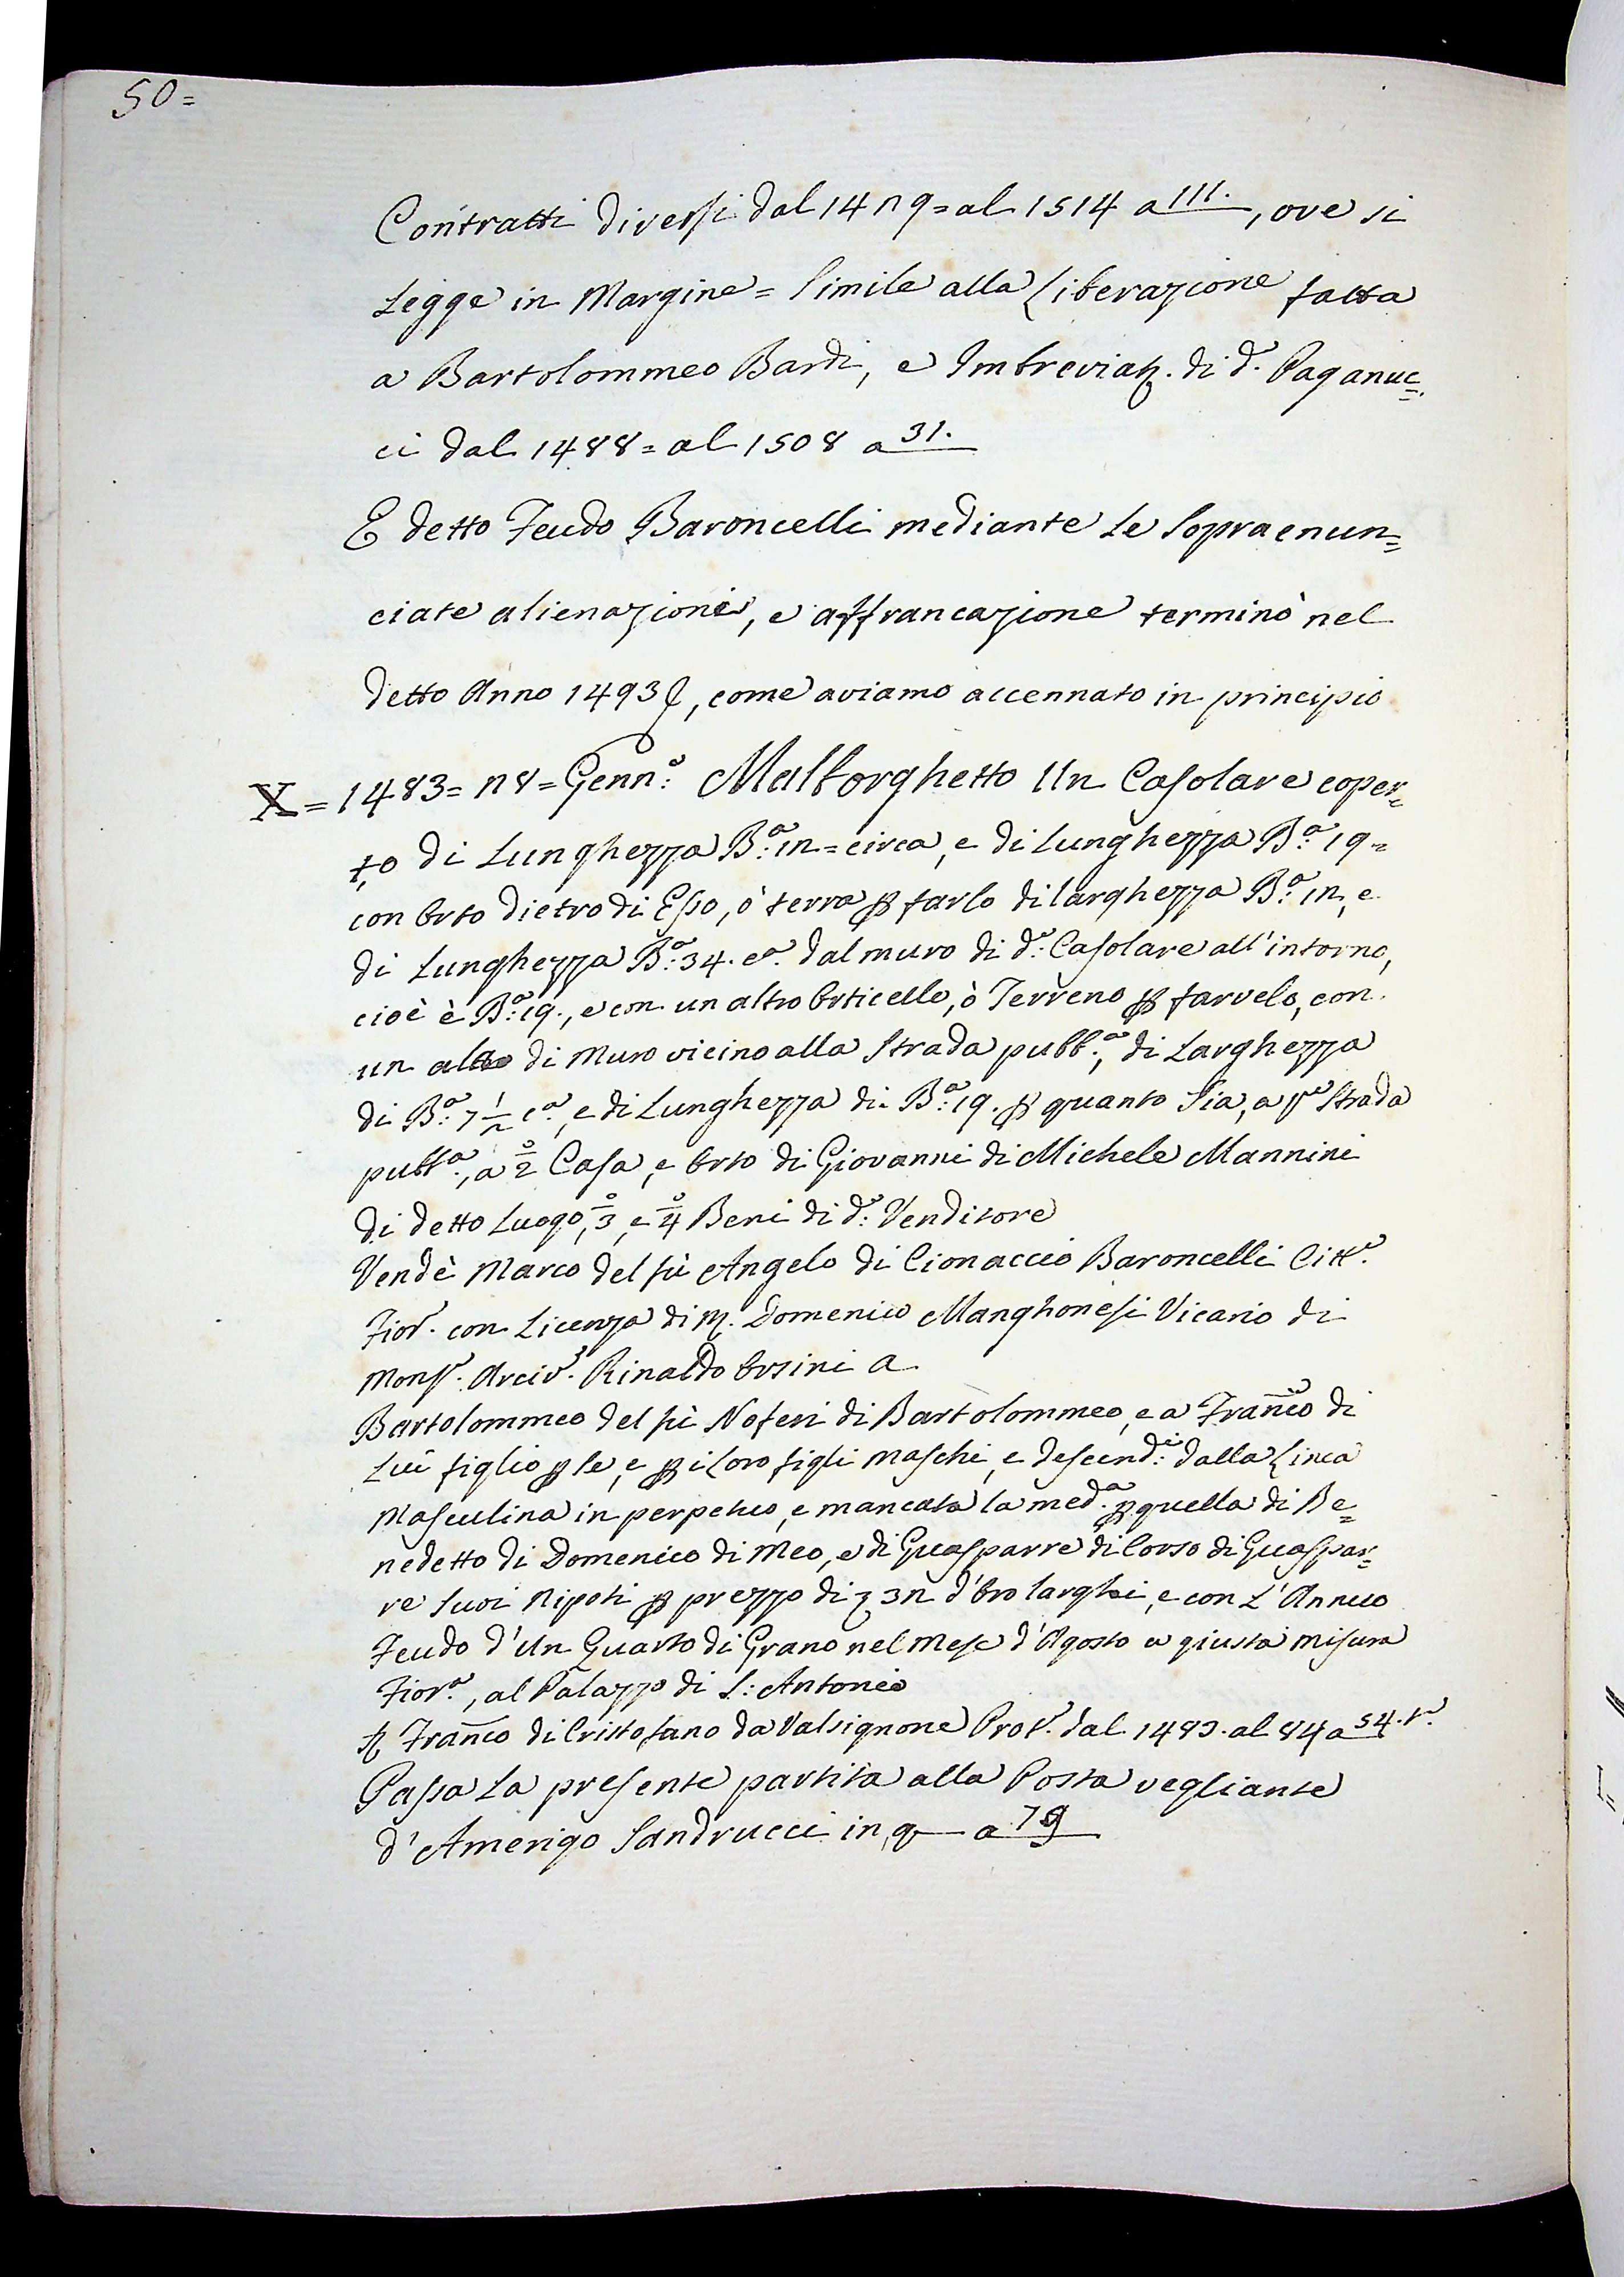 50=
Contratti diversi dal 1429=al 1514 a 111., ove si
Legge in Margine= Simile alla Liberazione fatta
a Bartolommeo Bardi, e Imbreviaz. di d.º Paganuc=
ci dal 1488=al 1508 a 31.
E detto Feudo Baroncelli mediante Le Sopraenun=
ciate alienazioni, e affrancazione terminò nel
detto Anno 1493, come aviamo accennato in principio
X=1483=28=Genn.º: Malborghetto Un Casolare coper=
to di Lunghezza B.ª: 12=circa, e di Lunghezza B.ª: 19=
con Orto dietro di Esso, ò terra ꝑ farlo di larghezza B.ª: 12, e
di Lunghezza B.ª: 34. c.ª dal muro di d.º: Casolare all'intorno,
cioè è B.ª: 19., e con un altro Orticello, ò Terreno ꝑ farvelo, con
un alto di Muro vicino alla Strada pubb.ª, di Larghezza
di B.ª: 7 1/2 c.ª, e di Lunghezza di B.ª: 19. ꝑ quanto Sia, a p.º Strada
pubb.ª, a 2º Casa, e Orto di Giovanni di Michele Mannini
di detto Luogo, 3º, e 4º Beni di d.º: Venditore
Vendè Marco del fù Angelo di Cionaccio Baroncelli Citt.º
Fior.º con Licenza di M. Domenico Manghonesi Vicario di
Mons.r Arciv.º Rinaldo Orsini a
Bartolommeo del fù Noferi di Bartolommeo, e a Franc̄o di
Lui figlio ꝑ se, e ꝑ i Loro figli Maschi, e descend.ti: dalla Linea
Masculina in perpetuo, e mancata la med.ª ꝑ quella di Be=
nedetto di Domenico di Meo, e di Guasparre di Corso di Guaspar=
re Suoi Nipoti ꝑ prezzo di 32 d'Oro larghi, e con L'Annuo
Feudo d'Un Quarto di Grano nel Mese d'Agosto a giusta Misura
Fior.ª, al Palazzo di S.: Antonio
Franc̄o di Cristofano da Valsignone Prot.º dal 1483. al 84 a 54. t.º
Passa La presente partita alla Posta vegliante
d'Amerigo Sandrucci in q a 79